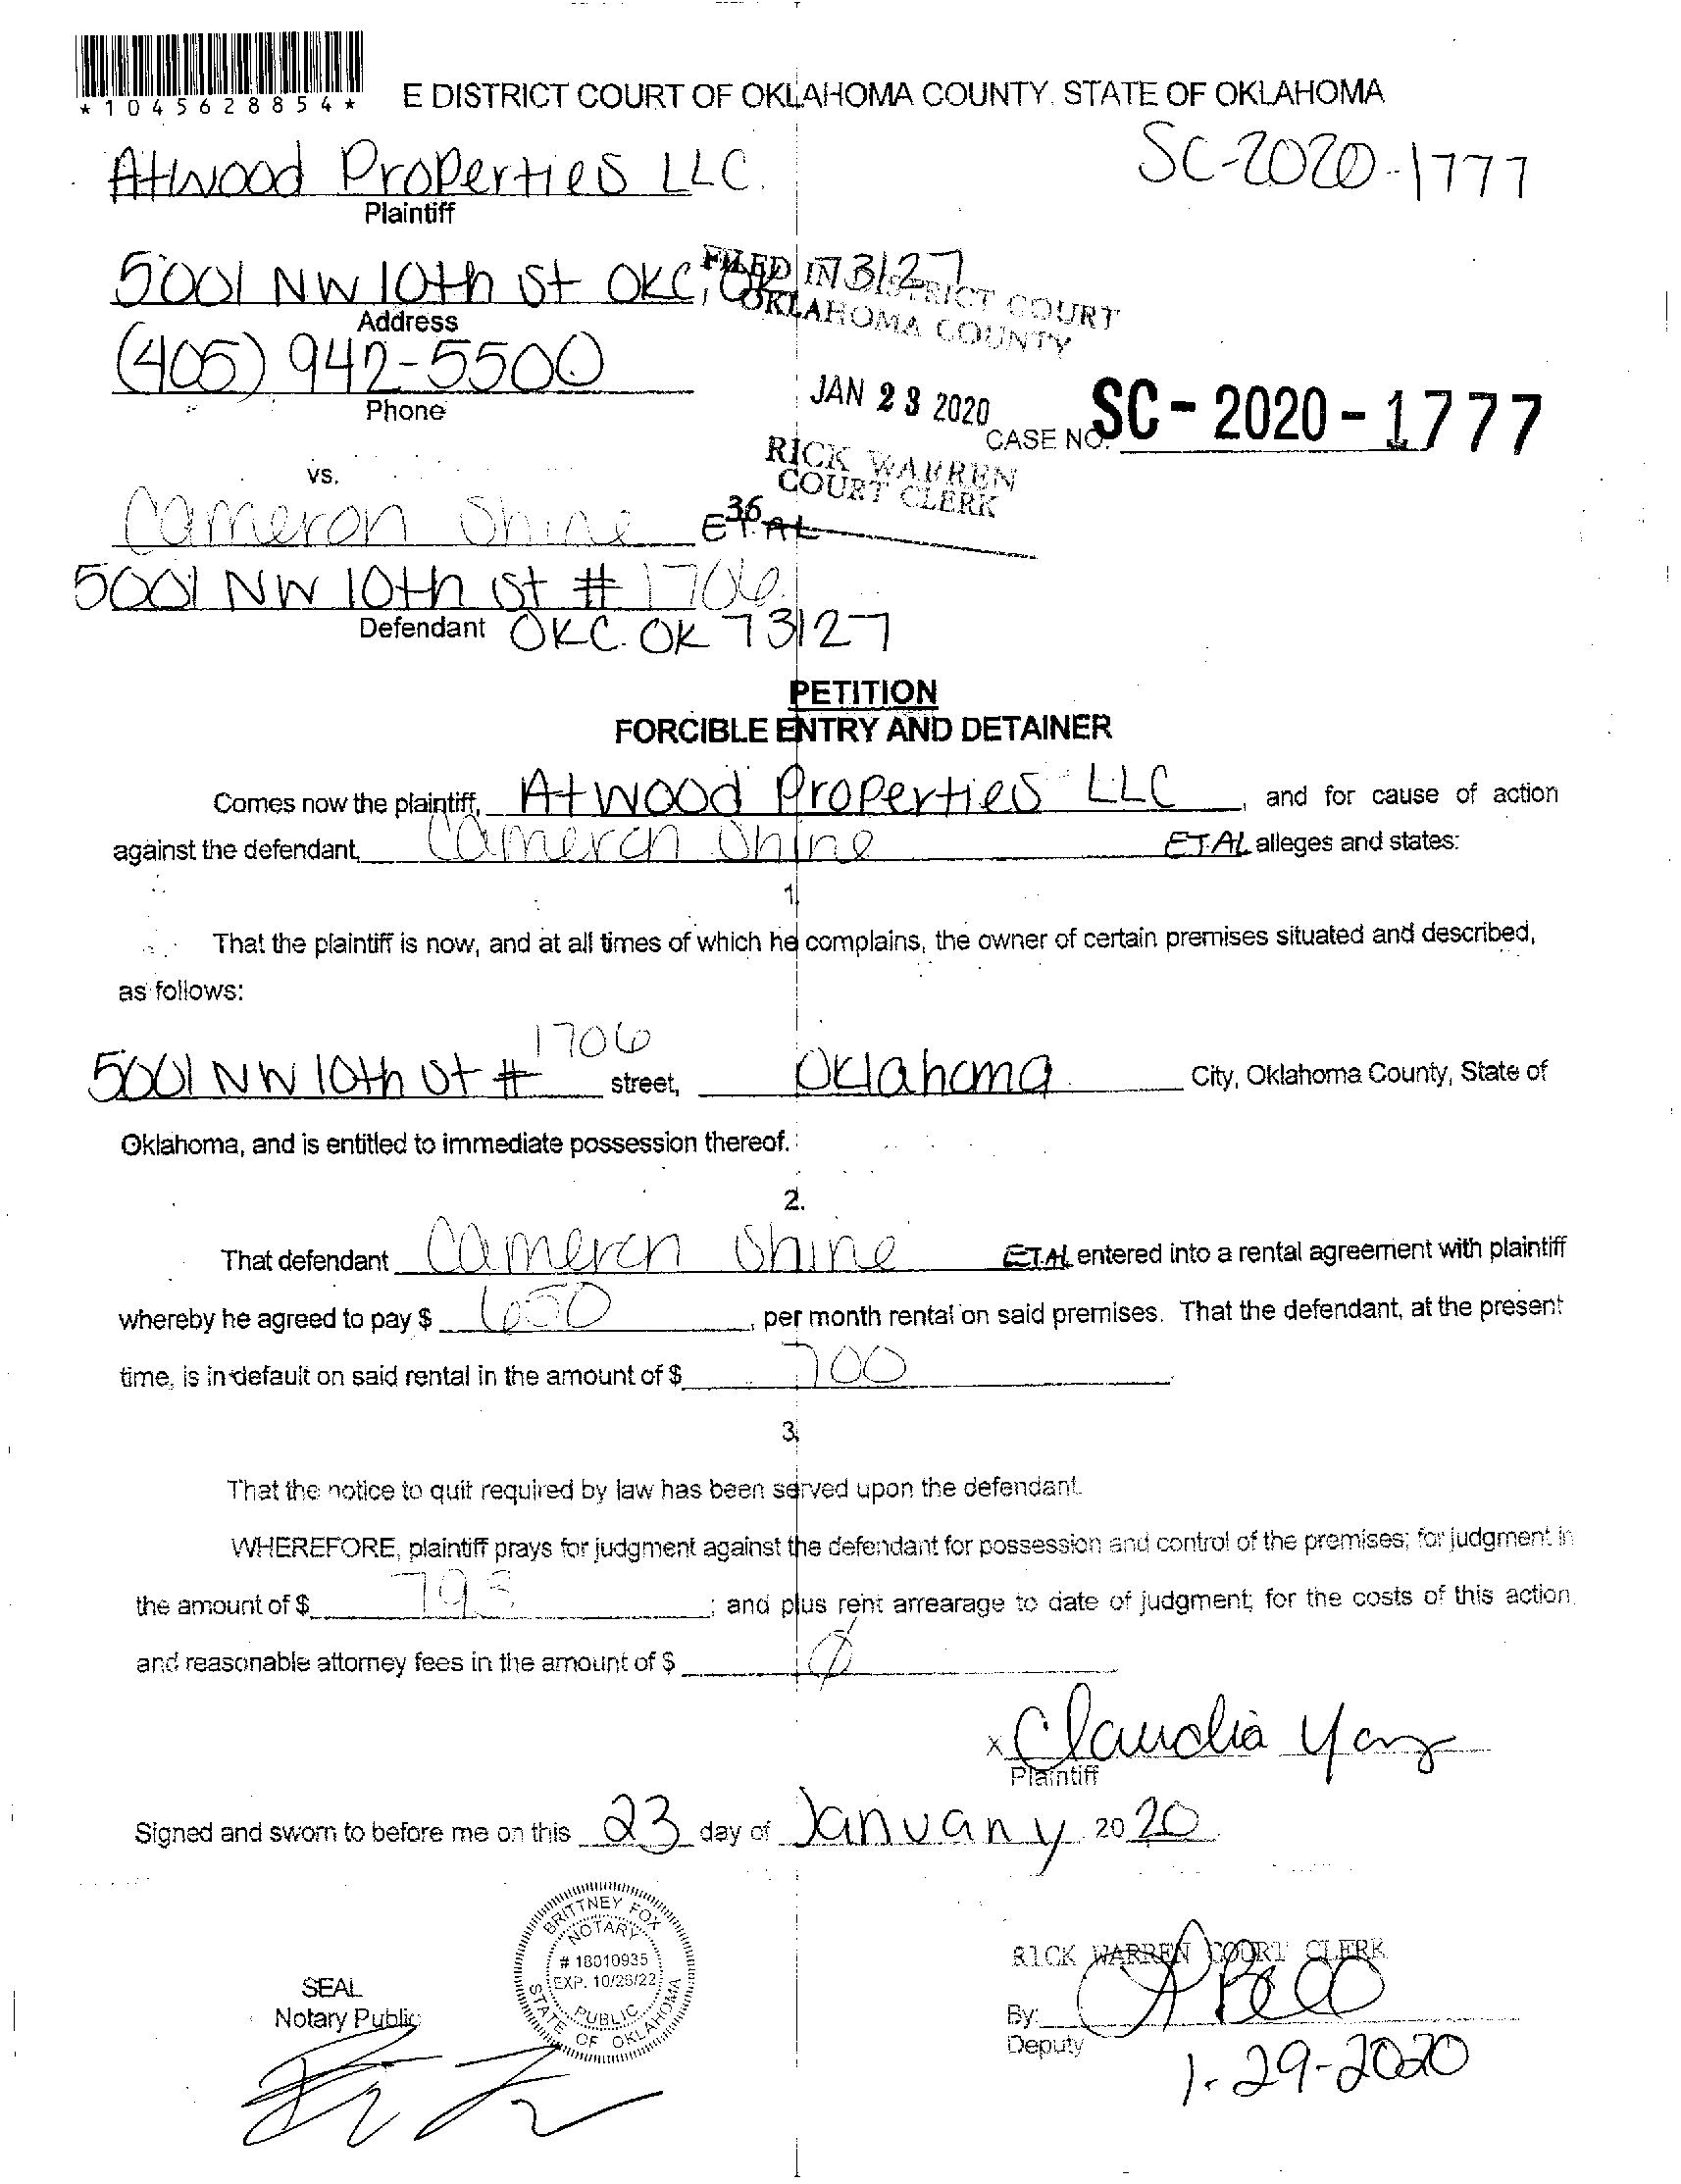 *1045628854*
E DISTRICT COURT OF OKLAHOMA COUNTY, STATE OF OKLAHOMA
Atwood Properties LLC.
SC-2020-1777
Plaintiff
5001 NW 10th St OKC, OK 73127
FILED IN DISTRICT COURT
OKLAHOMA COUNTY
Address
(405) 942-5500
Phone
JAN 23 2020
CASE NO. SC-2020-1777
RICK WARREN
COURT CLERK
36
vs.
Cameron Shine ET AL
5001 NW 10th St # 1706
Defendant OKC. OK 73127
PETITION
FORCIBLE ENTRY AND DETAINER
Comes now the plaintiff, Atwood Properties LLC, and for cause of action
against the defendant, Cameron Shine ET.AL alleges and states:
1.
That the plaintiff is now, and at all times of which he complains, the owner of certain premises situated and described,
as follows:
5001 NW 10th St # 1706 street, Oklahoma City, Oklahoma County, State of
Oklahoma, and is entitled to immediate possession thereof.
2.
That defendant Cameron Shine ET.AL entered into a rental agreement with plaintiff
whereby he agreed to pay $ 650, per month rental on said premises. That the defendant, at the present
time, is in default on said rental in the amount of $ 700
3.
That the notice to quit required by law has been served upon the defendant.
WHEREFORE, plaintiff prays for judgment against the defendant for possession and control of the premises; for judgment in
the amount of $ 793; and plus rent arrearage to date of judgment; for the costs of this action
and reasonable attorney fees in the amount of $ Ø
x Claudia Yanz
Plaintiff
Signed and sworn to before me on this 23 day of January 2020
BRITTNEY FOX
NOTARY
# 18010935
EXP. 10/28/22
PUBLIC
STATE OF OKLAHOMA
SEAL
Notary Public
RICK WARREN COURT CLERK
By:
Deputy
1-29-2020